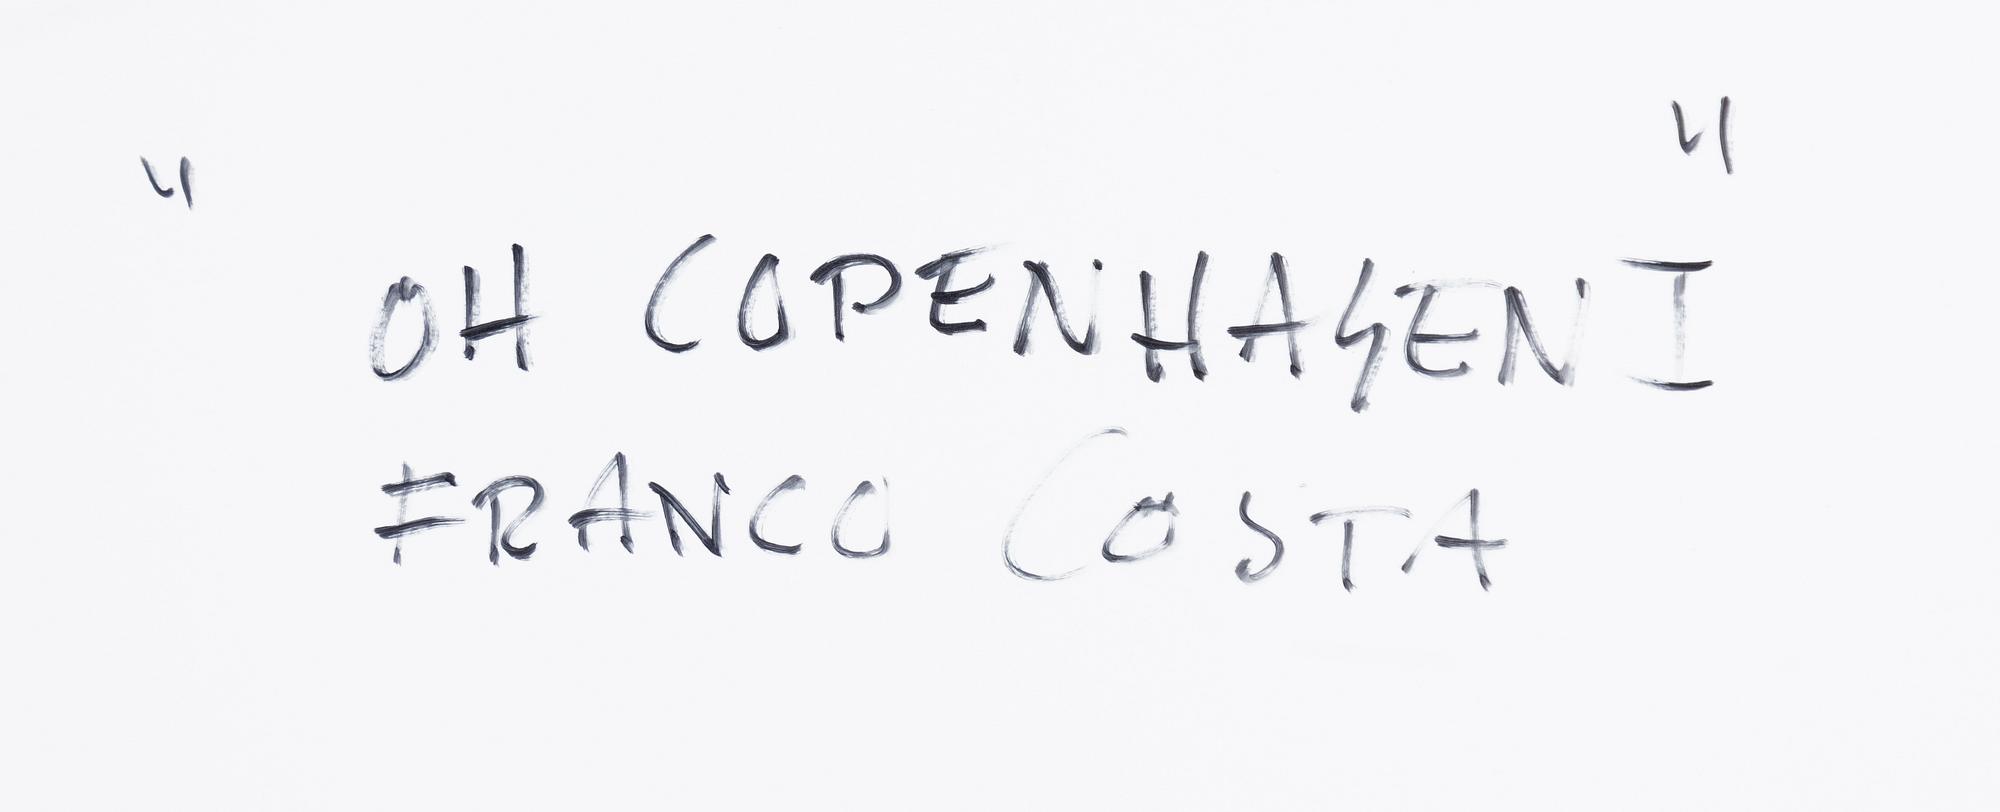 " OH COPENHAGEN I "
FRANCO COSTA